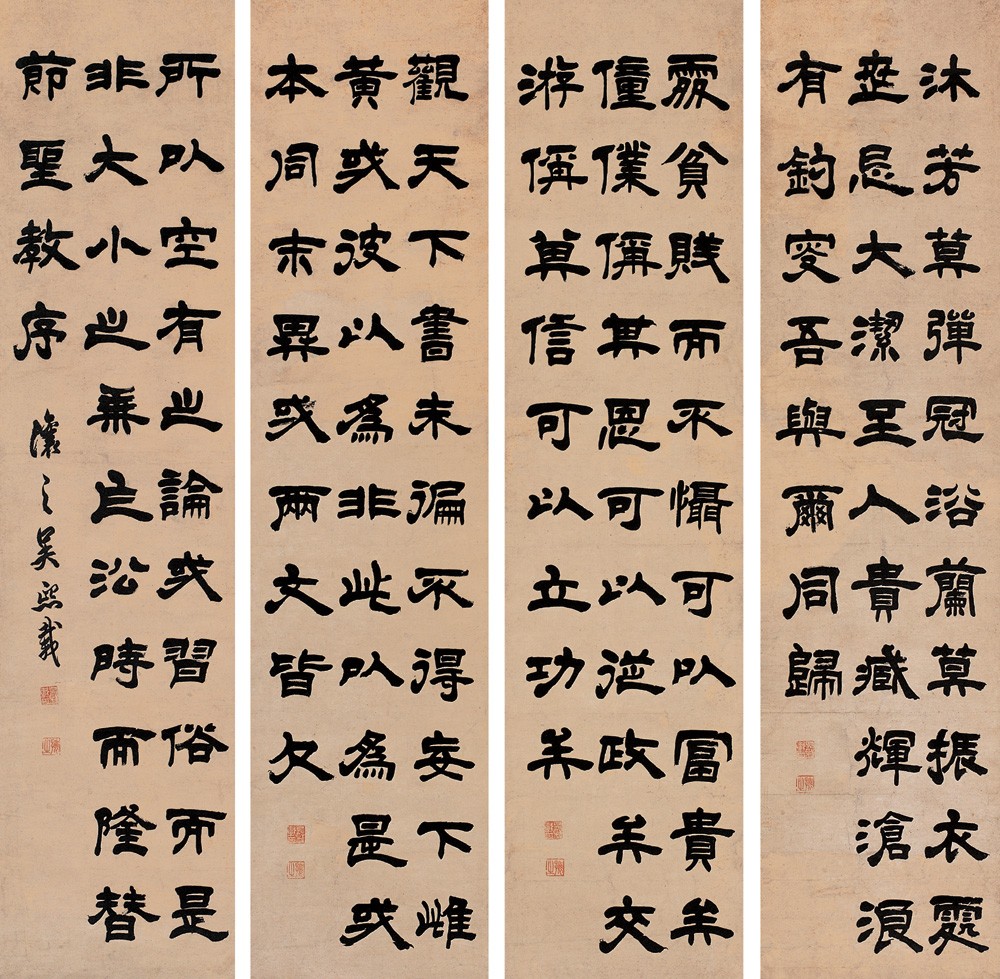 沐芳莫彈冠浴蘭莫振衣處
世忌大潔至人貴藏輝滄浪
有釣叟吾與爾同歸
處貧賤而不懾可以富貴矣
僮僕偁其恩可以從政矣交
游偁其信可以立功矣
觀天下書未徧不得妄下雌
黃或彼以為非此以為是或
本同末異或兩文皆欠
所以空有之論或習俗而是
非大小之乘乍沿時而隆替
節聖教序
讓之吳熙載